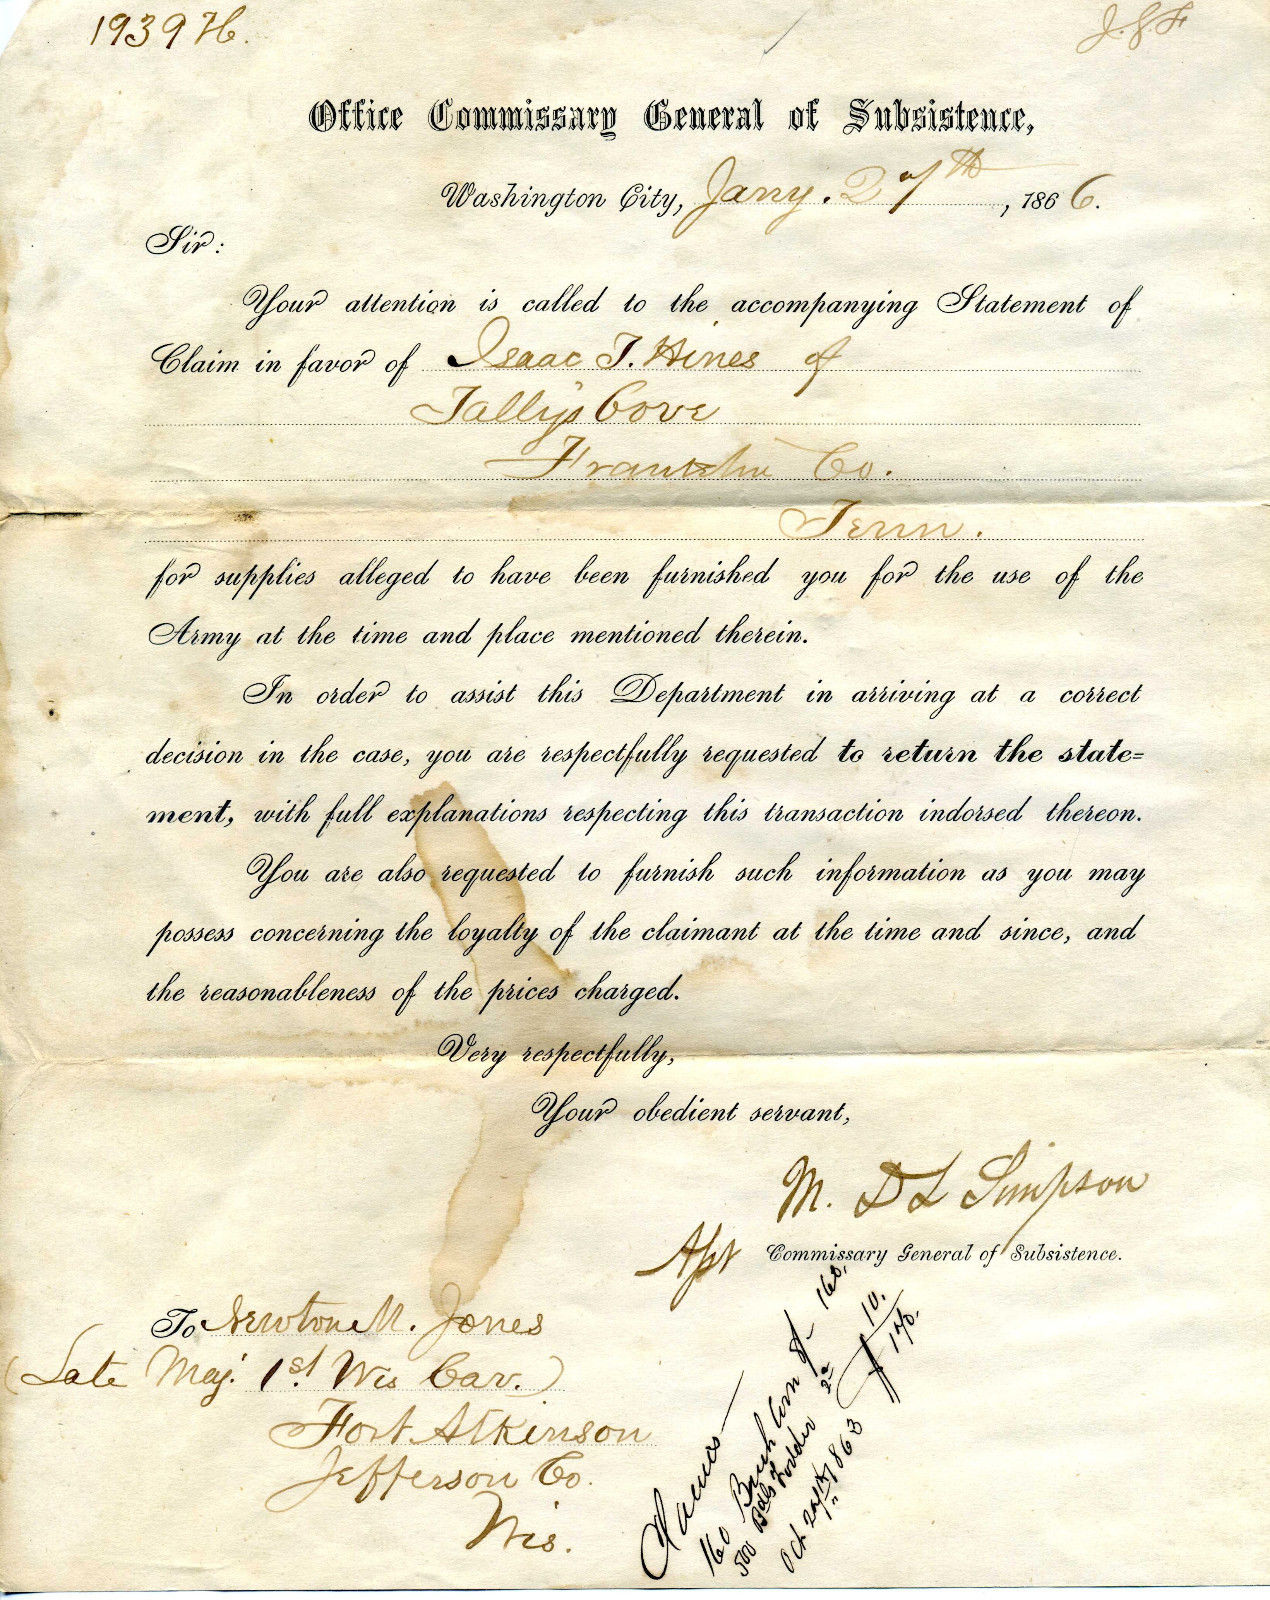 1939 H.
J.G.F
Office Commissary General of Subsistence,
Washington City, Jany. 27th, 1866.
Sir:
Your attention is called to the accompanying Statement of
Claim in favor of Isaac T. Hines of
Tally's Cove
Franklin Co.
Tenn.
for supplies alleged to have been furnished you for the use of the
Army at the time and place mentioned therein.
In order to assist this Department in arriving at a correct
decision in the case, you are respectfully requested to return the state=
ment, with full explanations respecting this transaction indorsed thereon.
You are also requested to furnish such information as you may
possess concerning the loyalty of the claimant at the time and since, and
the reasonableness of the prices charged.
Very respectfully,
Your obedient servant,
M. D L Simpson
Commissary General of Subsistence.
To Newton M. Jones
(Late Maj. 1st Wis Cav.)
Fort Atkinson
Jefferson Co.
Wis.
160 Bush Corn 160.
500 Bdls Fodder 10.
170.
Oct 1863